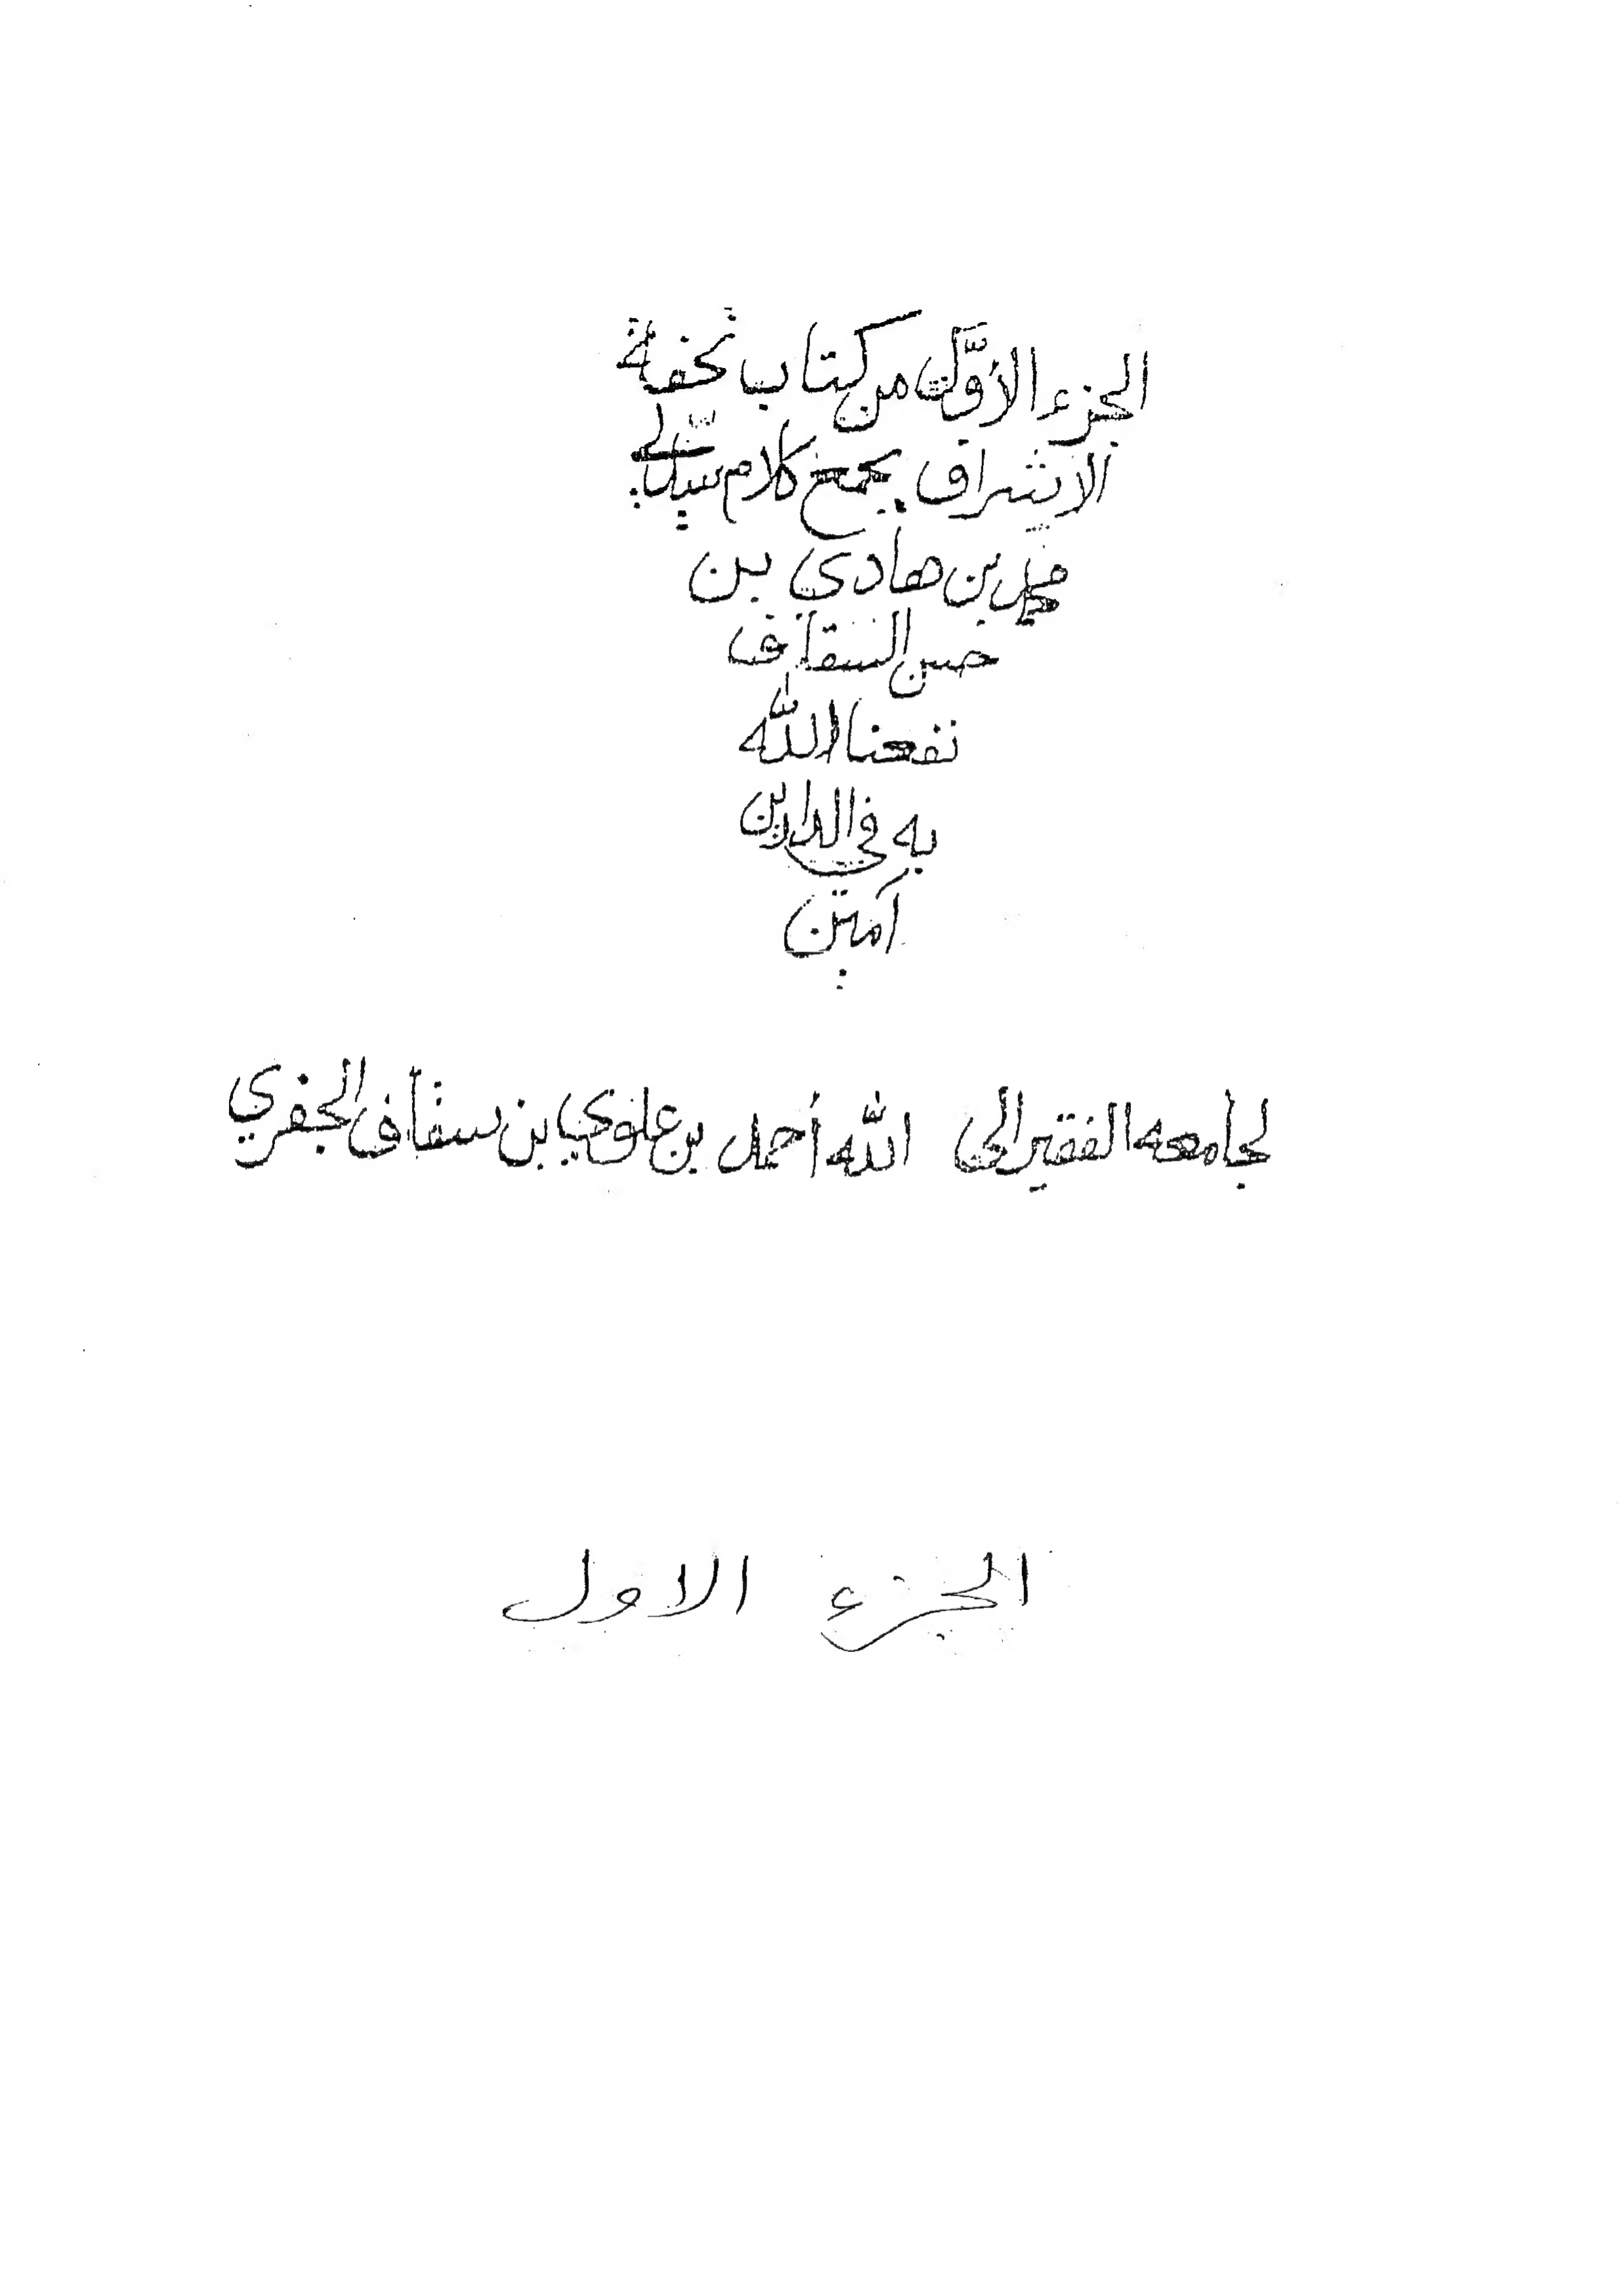 الجزء الأوَّل من كتاب تحفة
الاشراف بجمع كلام سيّدي
محمد بن هادي بن
حسن السقاف
نفعنا الله
به في الدارين
آمين
لجامعه الفقير الى الله أحمد بن علوي بن سقاف الجفري
الجزء الاول